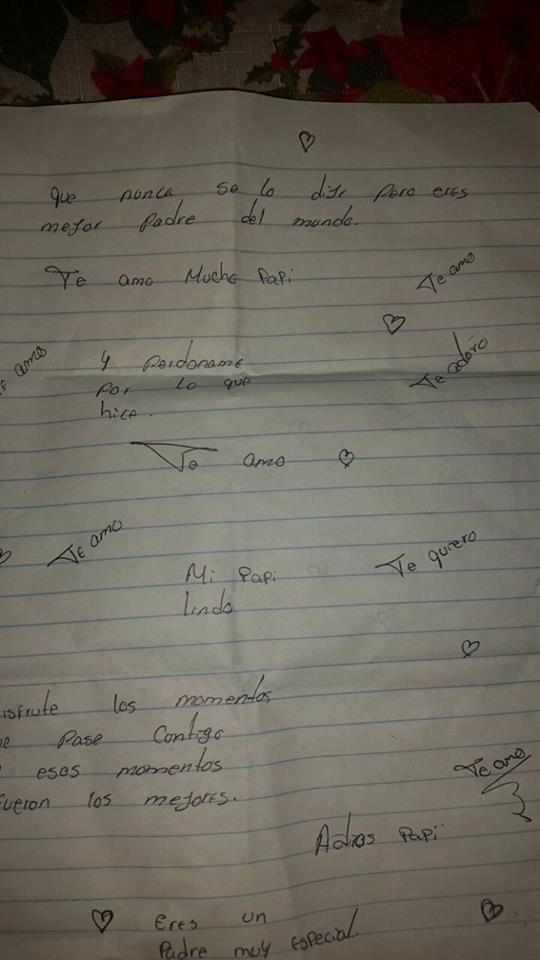 Que nunca se lo dije pero eres
mejor Padre del mundo.
Te amo Mucho Papi
Te amo
Te amo
Y Perdoname
Por lo que
hice.
Te adoro
Te amo
Te amo
Te quiero
Mi Papi
lindo
isfrute los momentos
e Pase Contigo
esos momentos
fueron los mejores.
Te amo
Adios Papi
Eres un
Padre muy Especial.